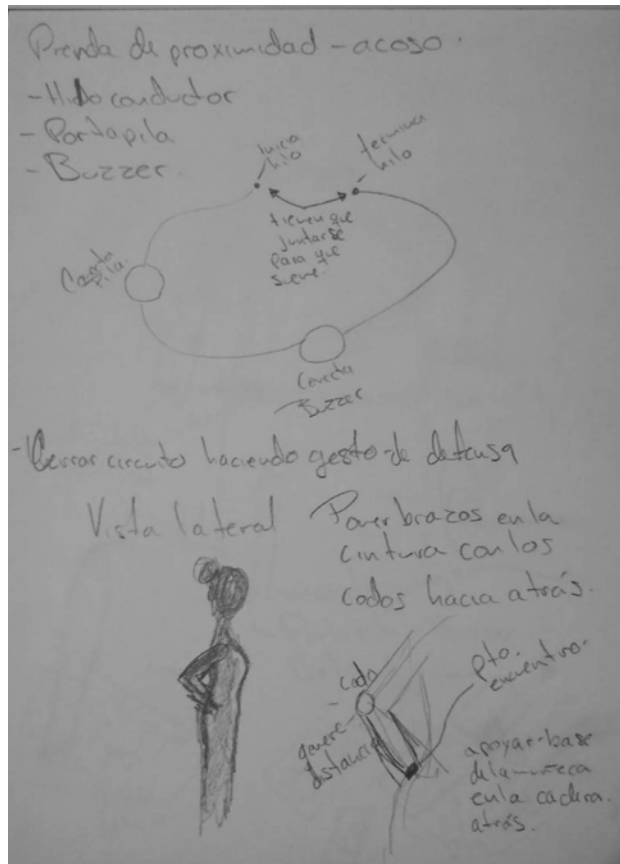 Prenda de proximidad - acoso.
- Hilo conductor
- Portapila
- Buzzer.
inicia
hilo
termina
hilo
tienen que
juntarse
para que
suene.
pila.
Conecta
Buzzer
- Cerrar circuito haciendo gesto de defensa
Vista lateral
Poner brazos en la
cintura con los
codos hacia atrás.
codo
genere
distancia
pto.
encuentro.
apoyar base
de la muñeca
en la cadera.
atrás.